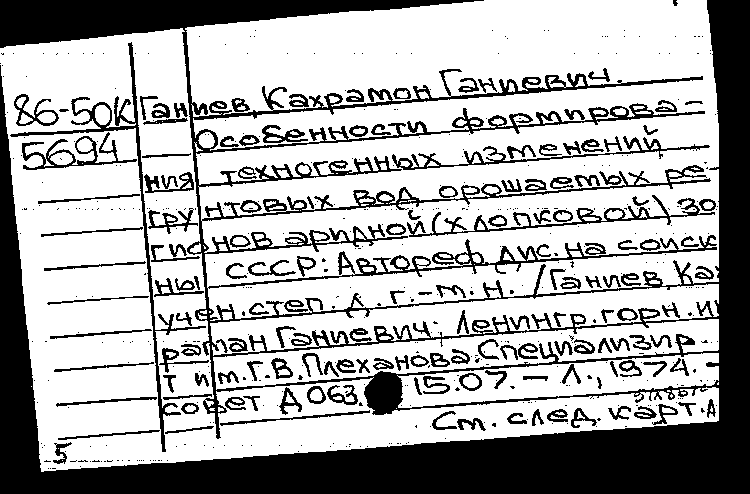 86-50К Ганиев, Кахрамон Ганиевич.
5694 Особенности формирова-
ния техногенных изменений
грунтовых вод орошаемых ре-
гионов аридной (хлопковой) зо
ны СССР: Автореф. дис. на соиск
учен. степ. д. г.-м. н. / Ганиев, Ках
раман Ганиевич; Ленингр. горн. ин
т им. Г. В. Плеханова. Специализир.
совет Д 063. 15.07. – Л., 1974. –
См. след. карт.
5